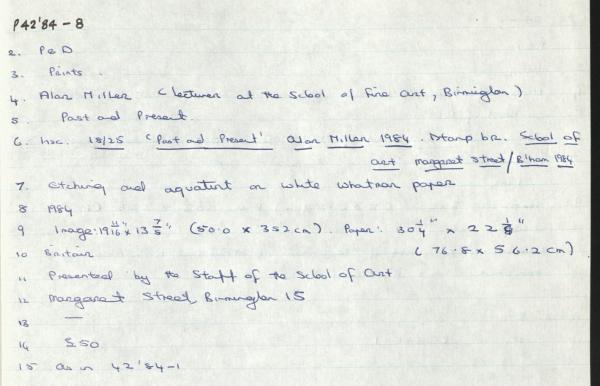 P42'84 - 8
2. P & D
3. Prints.
4. Alan Miller (lecturer at the School of Fine Art, Birmingham)
5. Past and Present.
6. Insc. 18/25 'Past and Present' Alan Miller 1984. Stamp b.r. School of
art margaret street/B'ham 1984
7. Etching and aquatint on white whatman paper
8 1984
9 Image: 19 11/16" x 13 7/8" (50.0 x 35.2 cm). Paper: 30 1/4" x 22 1/8"
10 Britain (76.8 x 56.2 cm)
11 Presented by the Staff of the School of Art
12 Margaret Street Birmingham 15
13 —
14 £50
15 as in 42'84-1